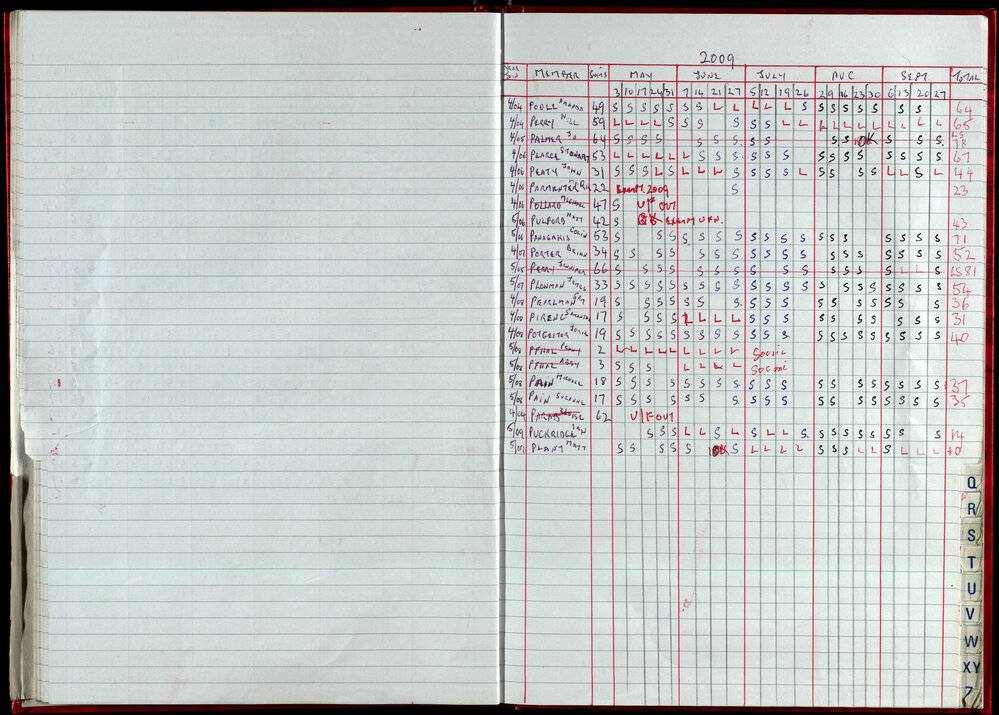 2009
MEMBER SWIMS MAY JUNE JULY AUG SEPT TOTAL
3 10 17 24 31 7 14 21 27 5 12 19 26 2 9 16 23 30 6 13 20 27
4/04 POOLE AMANDA 49 S S S S S S S L L L L L S S S S S S S S 64
4/04 PERRY WILL 59 L L L L S S S S S S L L L L L L L L L L L 65
4/05 PALMER JO 64 S S S S S S S S S S S S OK S S 78
4/06 PEARCE STEWART 53 L L L L L L S S S S S S S S S S S S S S 67
4/06 PEATY JOHN 31 S S S L S L L L S S S S L S S S S L L S L 44
4/06 PARMENTER 22 EXEMPT 2009 S 23
4/06 POLLARD MICHAEL 47 S U/F OUT
5/06 PULFORD MATT 42 S OK EXEMPT U.F.N. 43
5/06 PANAGAKIS COLIN 53 S S S S S S S S S S S S S S S S S S 71
4/07 PORTER BRIAN 34 S S S S S S S S S S S S S S S S S S 52
5/05 PERRY JENNIFER 66 S S S S S S S S S S S S S S S L L S 81
5/07 PLOWMAN JAMES 33 S S S S S S S S S S S S S S S S S S S S S 54
4/08 PEARLMAN 19 S S S S S S S S S S S S S S S S S 36
4/08 17 S S S S L L L L S S S S S S S S S S 31
4/08 POTGEITER 19 S S S S S S S S S S S S S S S S S S S S S 40
5/08 PFHAL PENNY 2 L L L L L L L L L Social
5/08 PFHAL ABBY 3 S S S L L L L Social
5/08 PAIN MICHAEL 18 S S S S S S S S S S S S S S S S S S S 37
5/08 PAIN SUZANNE 17 S S S S S S S S S S S S S S S S S S 35
4/04 62 U/F OUT
5/09 PUCKRIDGE IAN S S S L L S L S L L S S S S S S S S 14
5/09 PLANT MATT S S S S S OK S L L L L S S S L L S L L L 10
Q
R
S
T
U
V
W
XY
Z